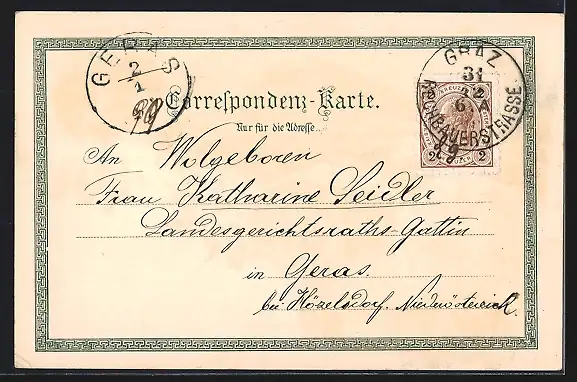 GERAS
2
1
99
GRAZ
31
12
6
RECHBAUERSTRASSE
KREUZER
2 2
Correspondenz-Karte.
Nur für die Adresse.
An Wolgeboren
Frau Katharine Seidler
Landesgerichtsraths-Gattin
in Geras.
bei Hötzelsdorf. Niederösterreich